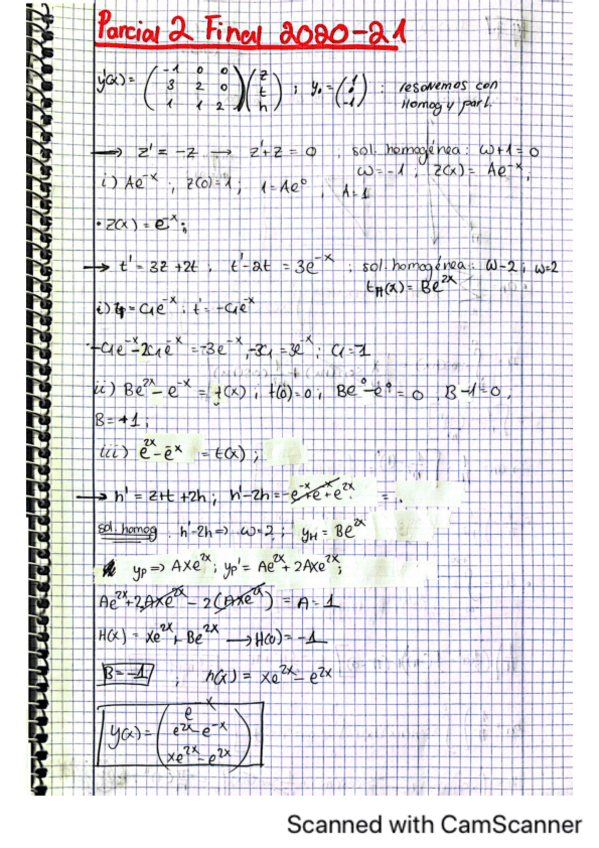 Parcial 2 Final 2020-21
y'(x) = (-1 0 0 / 3 2 0 / 1 1 2)(z / t / h) ; y₀ = (1 / 0 / -1) : resolvemos con
Homog y part.
→ z' = -z → z'+z = 0 ; sol. homogénea: ω+1=0
ω=-1 ; z(x) = Ae^-x ;
i) Ae^-x ; z(0)=1 ; 1=Ae^0 ; A=1
• z(x) = e^-x ;
→ t' = 3z+2t ; t'-2t = 3e^-x ; sol. homogénea: ω-2 ; ω=2
t_H(x) = Be^2x
i) t_p = C₁e^-x ; t' = -C₁e^-x
-C₁e^-x - 2C₁e^-x = -3e^-x , -3C₁ = 3e^-x ; C₁=-1
ii) Be^2x - e^-x = t(x) ; t(0)=0 ; Be^0 - e^0 = 0 B-1=0 ;
B=+1 ;
iii) e^2x - e^-x = t(x) ;
→ h' = z+t+2h ; h'-2h = -e^-x + e^-x + e^2x =
sol. homog h'-2h ⇒ ω=2 ; y_H = Be^2x
y_p ⇒ Axe^2x ; y_p' = Ae^2x + 2Axe^2x ;
Ae^2x + 2Axe^2x - 2(Axe^2x) = A = 1
H(x) = xe^2x + Be^2x → H(0) = -1
B=-1 ; h(x) = xe^2x - e^2x
y(x) = (e^-x / e^2x - e^-x / xe^2x - e^2x)
Scanned with CamScanner